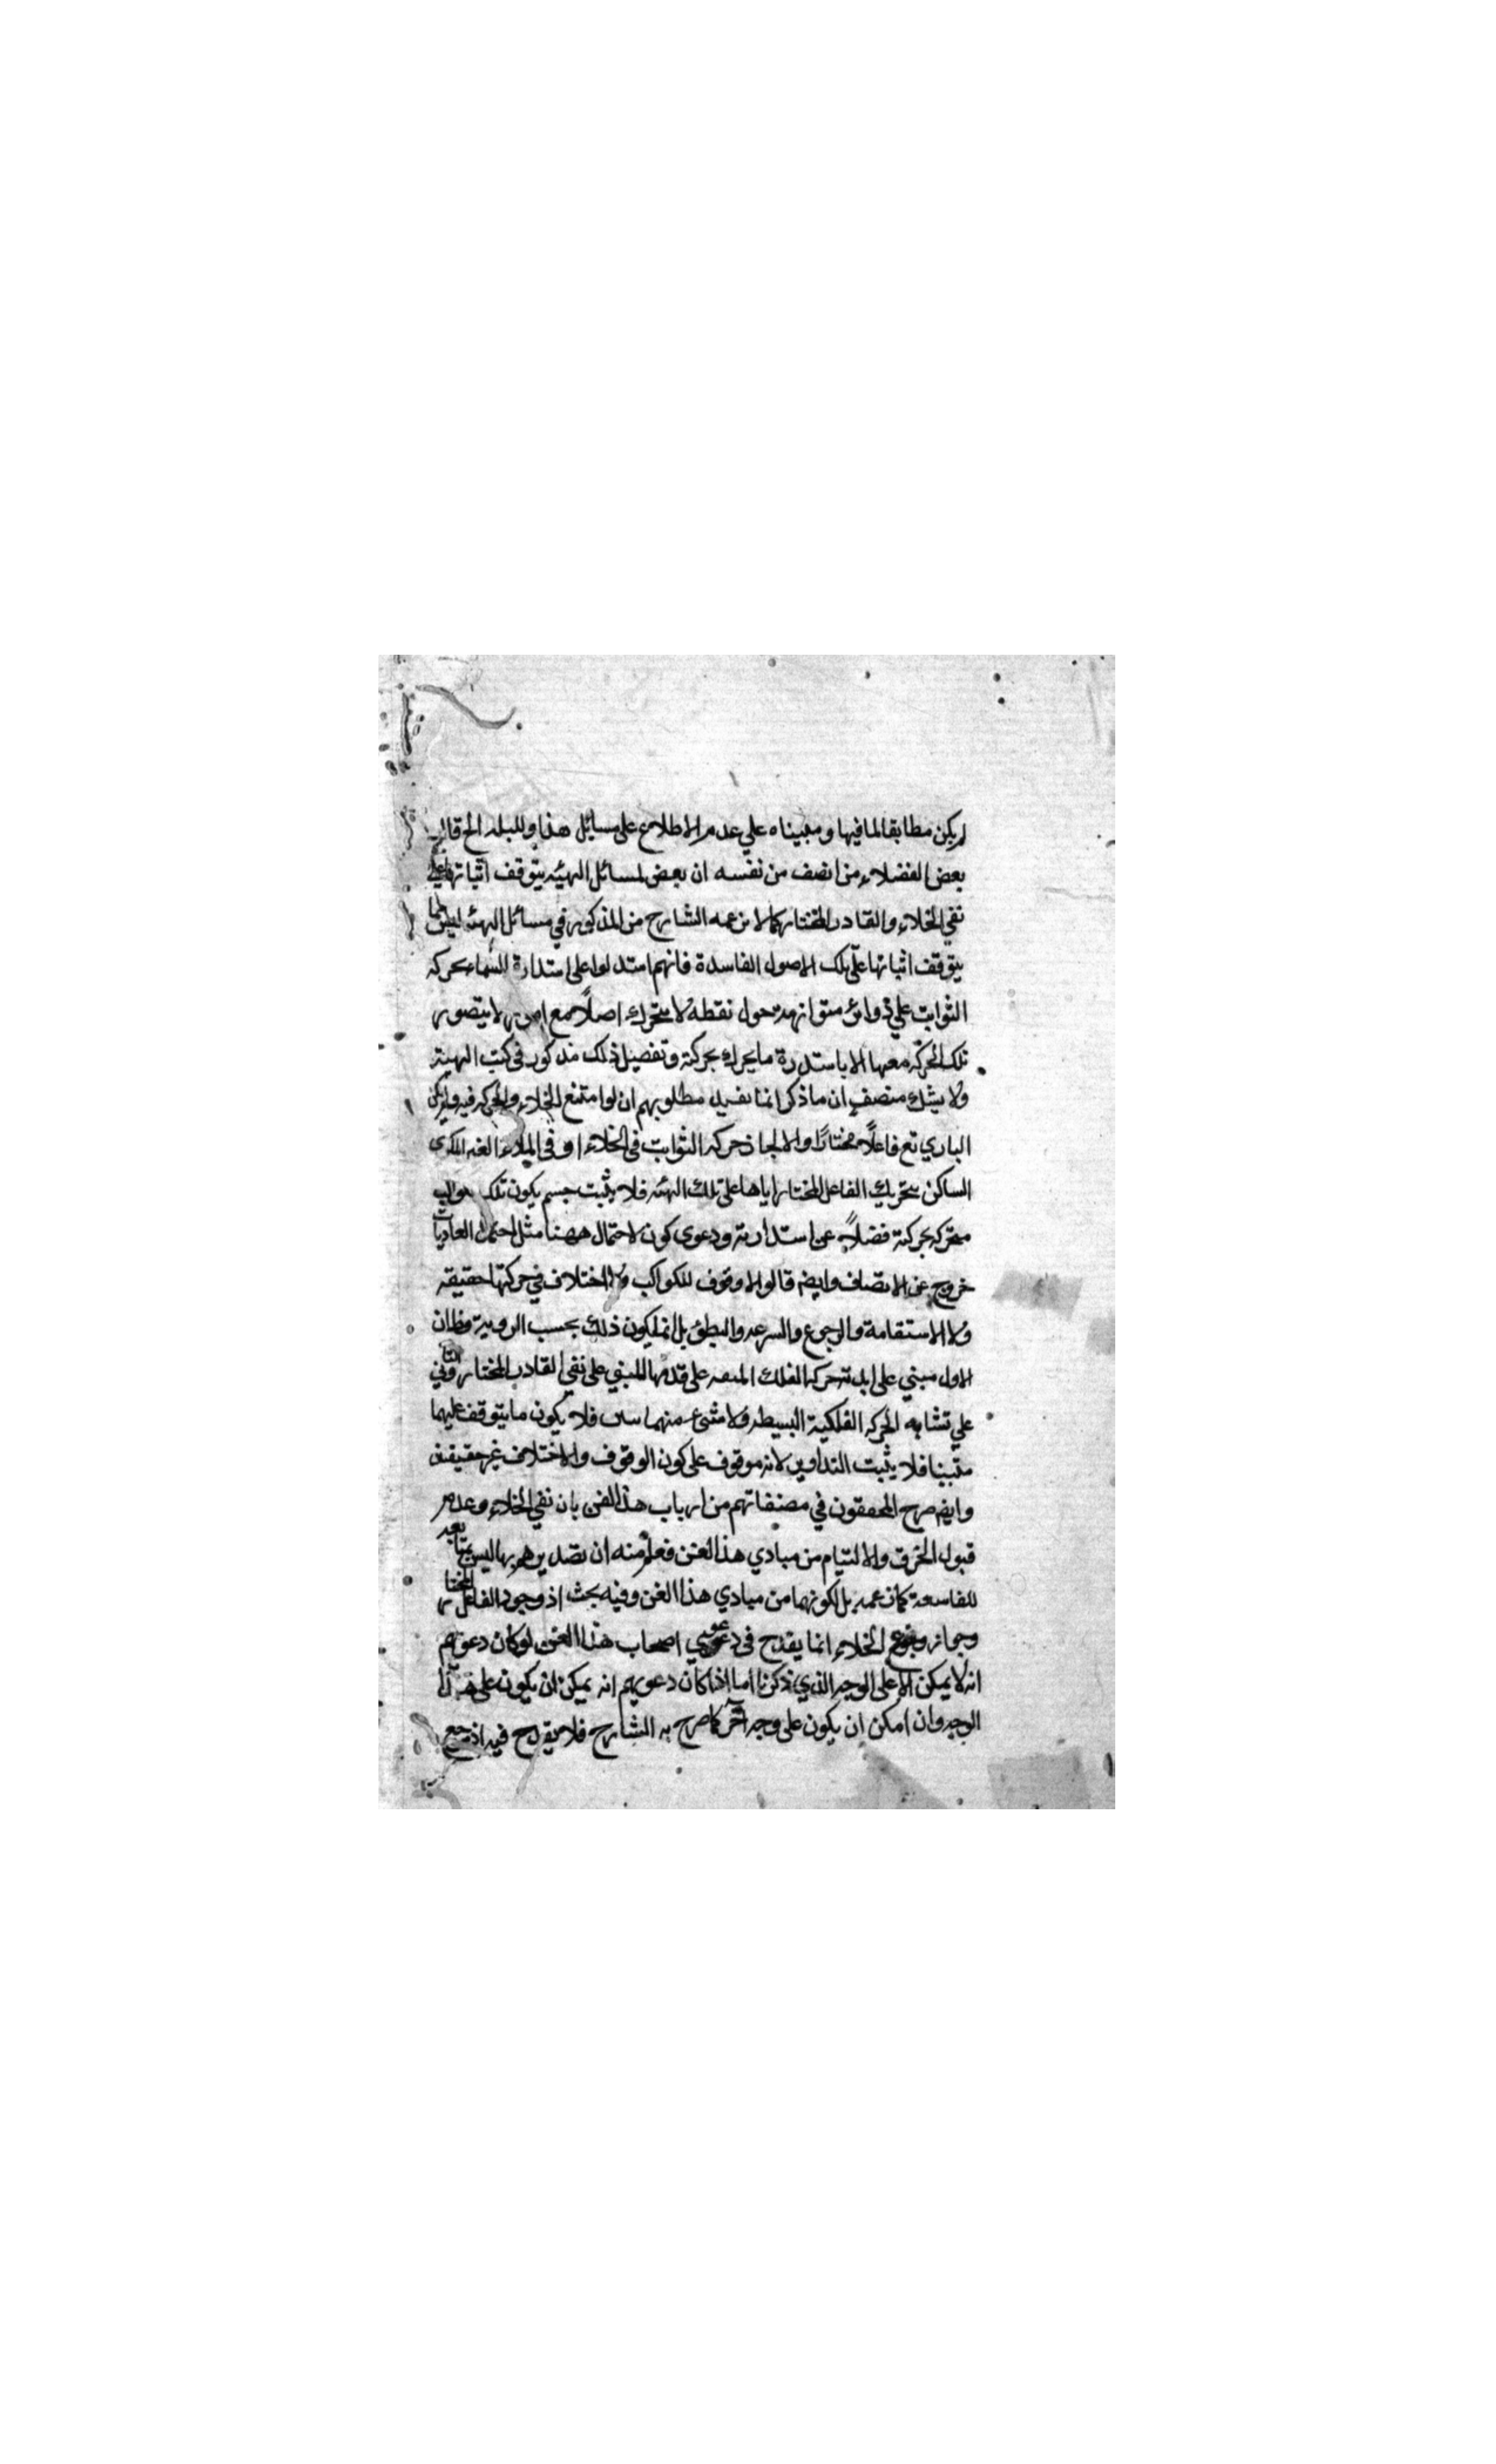 لم يكن مطابقا لما فيها ومبيناه علي عدم الاطلاع على مسائل هذا وللبله الخ قال
بعض الفضلاء من انصف من نفسه ان بعض لمسائل الهيئه يتوقف اثباتها على
نفي الخلاء والقادر المختار كما لا نزعمه الشارح من المذكور في مسائل الهيئه ليس مما
يتوقف اثباتها على تلك الاصول الفاسدة فانهم استدلوا على استدارة السماء بحركه
الثوابت علي دوائر متوازية حول نقطه لا يتحرك اصلاً مع لا يتصور
تلك الحركه معها الا باستدرة ما يحرك بحركته وتفصيل ذلك مذكور في كتب الهيئة
ولا يشك منصف ان ما ذكر انما يفيد مطلوبهم ان لو امتنع الخلاء والحركه فيه ولم يكن
الباري تع فاعلاً مختارًا والا لجاز حركه الثوابت في الخلاء او في الملاء الغير
الساكن بتحريك الفاعل المختار اياها على تلك الهيئه فلا يثبت جسم يكون تلك
متحركه بحركته فضلاً عن استدارته ودعوى كون لاحتمال ههنا مثل احتمال العاديات
خروج عن الانصاف وايضه قالوا لا وقوف للكواكب ولا اختلاف في حركتها حقيقه
ولا الاستقامة والرجوع والسرعه والبطؤ بل انما يكون ذلك بحسب الروية وظ ان
الاول مبني على ابدية حركه الفلك على قدمها المبني على نفي القادر المختار والثاني
علي تشابه الحركه الفلكية البسيطه ولا شئ منهما فلا يكون ما يتوقف عليهما
مبينا فلا يثبت التداوير لانه موقوف على كون الوقوف والاختلاف غير حقيقين
وايضه صرح المحققون في مصنفاتهم من ارباب هذا الفن بان نفي الخلاء وعدم
قبول الخرق والالتيام من مبادي هذا الفن فعلم منه ان تصديرهم بها ليس متابعه
للفلسفة كما زعمه بل لكونها من مبادي هذا الفن وفيه بحث اذ وجود الفاعل المختار
وجواز وقوع الخلاء انما يقدح في دعوي اصحاب هذا الفن لو كان دعوهم
انه لا يمكن الا على الوجه الذي ذكرنا اما اذا كان دعويهم انه يمكن ان يكون على هذا
الوجه وان امكن ان يكون على وجه آخر كما صرح به الشارح فلا يقدح فيه اذ مع